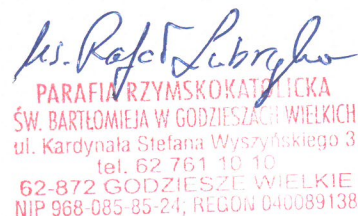 ks. Rafał
PARAFIA RZYMSKOKATOLICKA
ŚW. BARTŁOMIEJA W GODZIESZACH WIELKICH
ul. Kardynała Stefana Wyszyńskiego 3
tel. 62 761 10 10
62-872 GODZIESZE WIELKIE
NIP 968-085-85-24; REGON 040089138